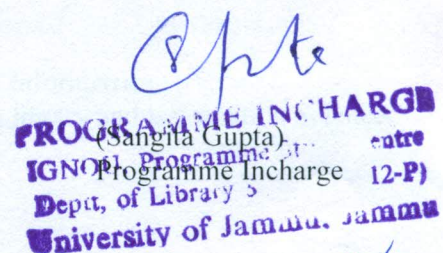 PROGRAMME INCHARGE
(Sangita Gupta)
IGNOU Programme entre
Programme Incharge 12-P)
Deptt, of Library
University of Jammu, Jammu